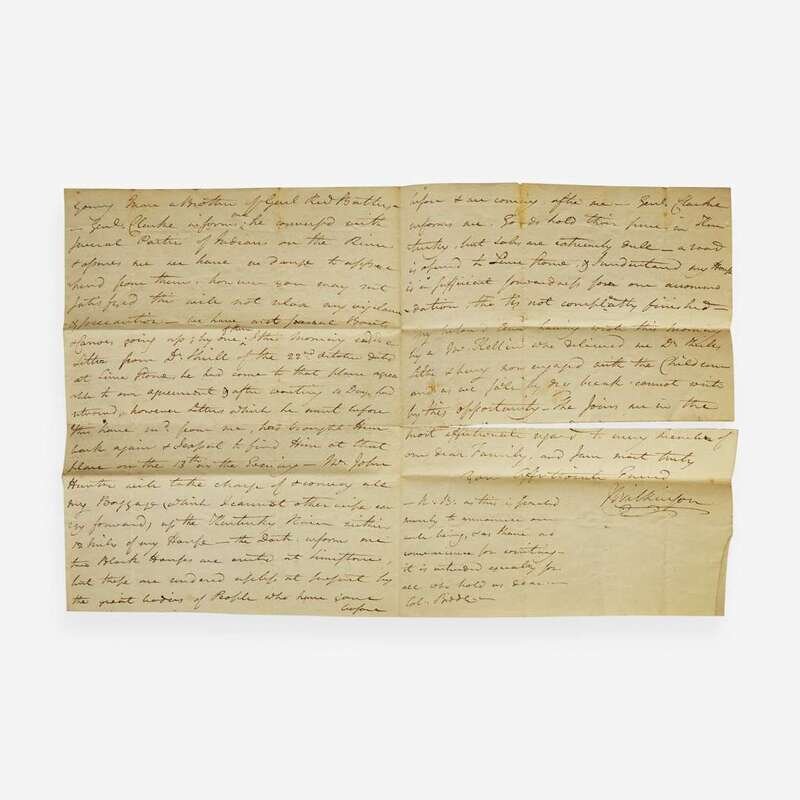 young Man a Brother of Genl Rid Butler
— Genl Clarke informs me he conversed with
several Parties of Indians on the River
& assures me we have no danger to appre
hend from them, however you may rest
satisfied this will not relax my vigilance
& precaution — we have met several Boats
& Canoes going up; by one, I this morning read a
Letter from Dr Shiell of the 22d October dated
at Lime Stone, he had come to that place agree
able to our agreement & after waiting 10 Days, had
returned, however letters which he must before
this have recd from me, has brought Him
back again & I expect to find Him at that
place on the 13th in the Evening — Mr John
Hunter will take charge of & convey all
my Baggage, which I cannot otherwise car
ry forward, up the Kentucky River within
18 Miles of my House — the Doctr informs me
two Block Houses are erected at Limestone,
but these are rendered useless at present by
the great bodies of People who have gone
before
before & are coming after me — Genl Clarke
informs me Goods hold their price in Ken-
tucky, but Sales are extremely dull — a road
is opened to Lime Stone, & I understand my House
is in sufficient forwardness for our accommo
dation, tho' tis not completely finished —
by a Mr
who delivered me Dr
Letter & being now engaged with the Children
and as we by Day break cannot write
by this opportunity — She Joins me in the
most affectionate regard to every Member of
our dear Family, and I am most truly
Your Affectionate Friend
JWilkinson
— N.B. as this is
merely to announce our
well being, & as I have no
convenience for writing —
it is intended equally for
all who hold us dear —
Col. Biddle —